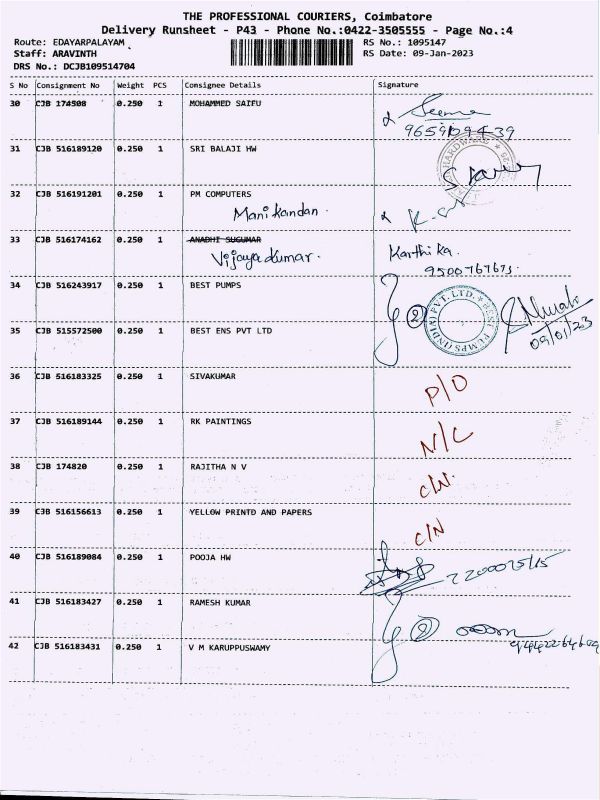 THE PROFESSIONAL COURIERS, Coimbatore
Delivery Runsheet - P43 - Phone No.:0422-3505555 - Page No.:4
Route: EDAYARPALAYAM RS No.: 1095147
Staff: ARAVINTH RS Date: 09-Jan-2023
DRS No.: DCJB109514704
S No Consignment No Weight PCS Consignee Details Signature
30 CJB 174508 0.250 1 MOHAMMED SAIFU
31 CJB 516189120 0.250 1 SRI BALAJI HW
32 CJB 516191201 0.250 1 PM COMPUTERS
Manikandan.
33 CJB 516174162 0.250 1 ANADHI SUGUMAR Karthika.
Vijayakumar. 9500767673.
34 CJB 516243917 0.250 1 BEST PUMPS
2 BEST PUMPS (INDIA) PVT. LTD.
09/01/23
35 CJB 515572500 0.250 1 BEST ENS PVT LTD
36 CJB 516183325 0.250 1 SIVAKUMAR P/O
37 CJB 516189144 0.250 1 RK PAINTINGS N/C
38 CJB 174820 0.250 1 RAJITHA N V C/N.
39 CJB 516156613 0.250 1 YELLOW PRINTD AND PAPERS C/N
40 CJB 516189084 0.250 1 POOJA HW
41 CJB 516183427 0.250 1 RAMESH KUMAR
2
42 CJB 516183431 0.250 1 V M KARUPPUSWAMY